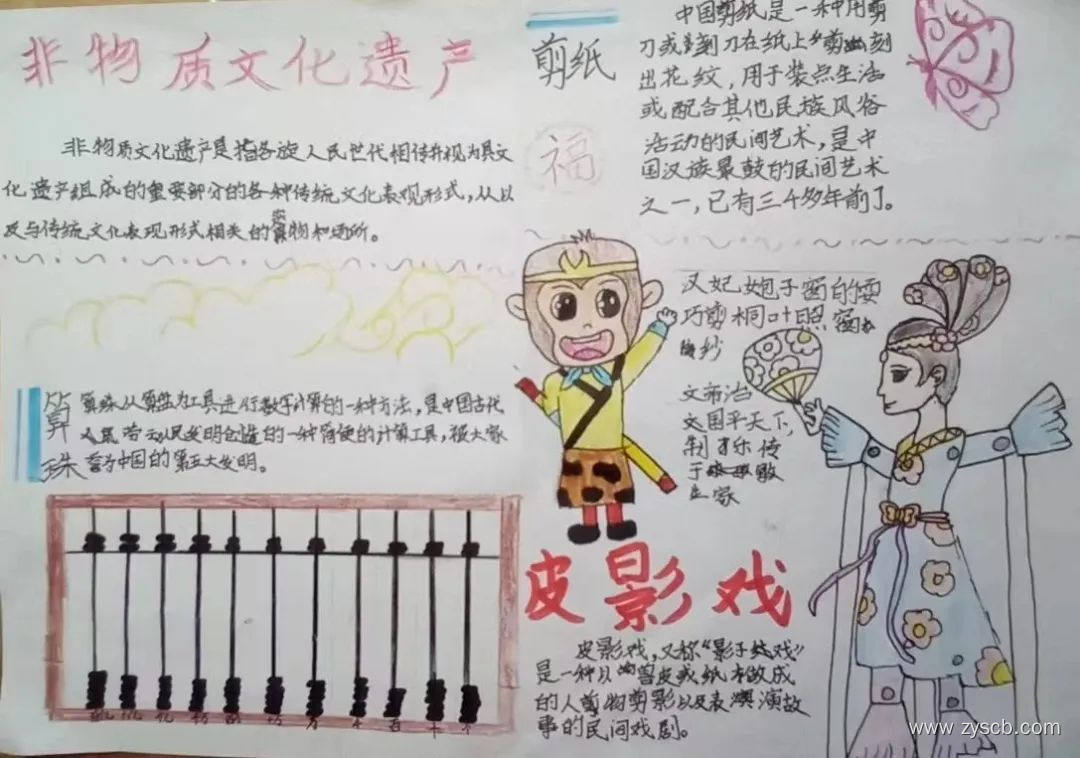 非物质文化遗产
非物质文化遗产是指各族人民世代相传并视为其文
化遗产组成的重要部分的各种传统文化表现形式,从以
及与传统文化表现形式相关的实物和场所。
剪纸
福
中国剪纸是一种用剪
刀或刻刀在纸上剪刻
出花纹,用于装点生活
或配合其他民族风俗
活动的民间艺术,是中
国汉族最古的民间艺术
之一,已有三千多年前了。
算珠
算珠以算盘为工具进行数字计算的一种方法,是中国古代
劳动人民发明创造的一种简便的计算工具,被大家
誉为中国的第五大发明。
亿 万 千 百 十 个
汉妃抱子窗前耍
巧剪桐叶照窗
纱
文帝治
国平天下,
制乐传
于
家
皮影戏
皮影戏,又称“影子戏”
是一种以兽皮或纸板做成
的人物剪影以表演故
事的民间戏剧。
www.zyscb.com